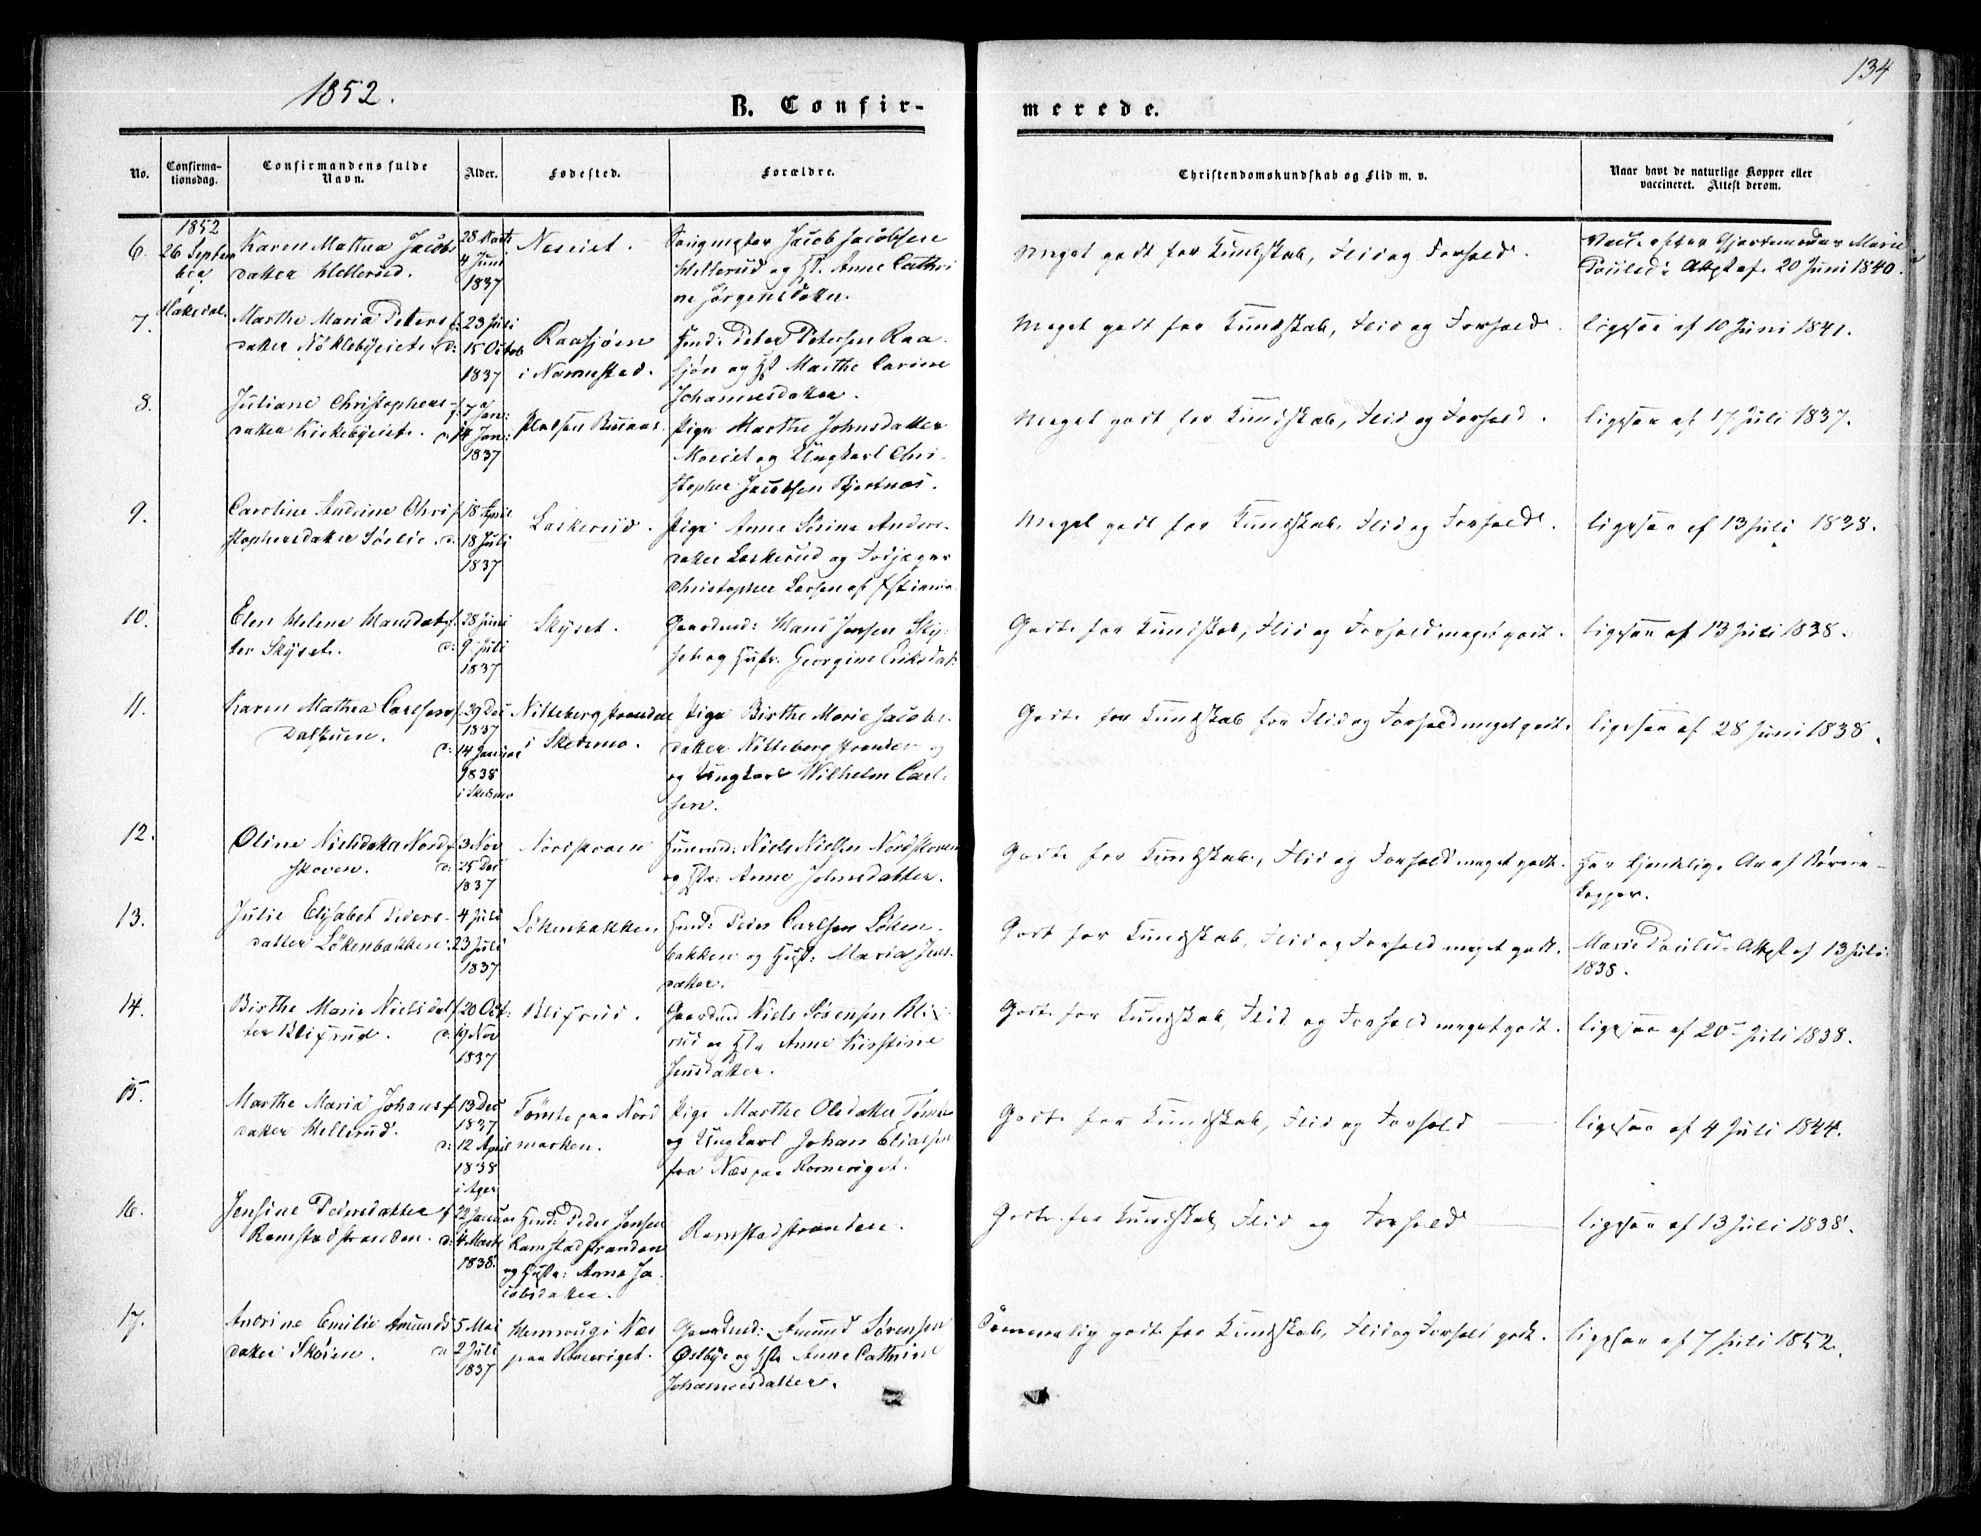 1852.
134
B. Confir-
merede.
No.
Confirma-
tionsdag.
Confirmandens fulde
Navn.
Alder.
Fødested.
Forældre.
Christendomskundskab og Flid m. v.
Naar havt de naturlige Kopper eller
vaccineret. Attest derom.
6.
1852
26 Septem
ber
Hakedal.
Karen Mathea Jacobs
datter Hellerud.
28 Marts
4 Juni
1837
Jacob Jacobsen
Hellerud og Anne Cathri
ne Jørgensdatter.
Meget godt for Kundskab, Flid og Forhold.
Vacc. efter Gjordemoder Marie
Pouls Attest af 20 Juni 1840.
7.
Marthe Maria Peters
datter Nøklebyeiet.
f: 23 Juli
d: 15 Octob
1837
Raasjøen
i Nannestad.
Husmd: Peter Petersen Raa
sjøn og Marthe Carine
Johannesdatter.
Meget godt for Kundskab, Flid og Forhold.
ligesaa af 10 Juni 1841.
8.
Juliane Christophers-
datter Kirkebyeiet.
f: 7 Jan:
d: 14 Jan:
1837
Pladsen
Pige Marthe Johnsdatter
Moeiet og Ungkarl Chri-
stopher Jacobsen Bjertnæs.
Meget godt for Kundskab, Flid og Forhold.
ligesaa af 17 Juli 1837.
9.
Caroline Andrine Chri
stophersdatter Sørlie.
f 18 April
d: 18 Juli
1837
Laskerud.
Pige Anne Sørine Anders-
datter Laskerud og
Christopher Larsen af Xstiania
Meget godt for Kundskab, Flid og Forhold.
ligesaa af 13 Juli 1838.
10.
Elen Helene Hansdat
ter Skyset.
f. 28 Juni
d: 9 Juli
1837
Skyset.
Gaardmd: Hans Jensen Sky-
set og Hustr: Georgine Eriksdat:
Godt for Kundskab, Flid og Forhold meget godt.
ligesaa af 13 Juli 1838.
11.
Karen Mathea Carlsen
Dalstuen.
f. 29 Dec
1837
d: 14 Januar
1838
i Skedsmo
Nitteberg stranden
i Skedsmo.
Pige Birthe Marie Jacobs-
datter Nitteberg stranden og
og Ungkarl Wilhelm Carl-
sen.
Godt for Kundskab for Flid og Forhold meget godt.
ligesaa af 28 Juni 1838.
12.
Oline Nielsdatter Nord
skoven.
f 3 Nov
d: 25 Dec
1837
Nordskoven
Husmd: Niels Nielsen Nordskoven
og Hstr: Anne Johnsdatter.
Godt for Kundskab, Flid og Forhold meget godt.
Har kjendelige Ar af
Kopper.
13.
Julie Elisabet Peders-
datter Løkenbakken.
4 Juli
23 Juli
1837
Løkenbakken
Husmd: Peder Carlsen Løken-
bakken og Hustr: Maria Jens-
datter.
Godt for Kundskab, Flid og Forhold meget godt.
Marie Pouls Attest af 13 Juli
1838.
14.
Birthe Marie Nielsdat
ter Blixrud.
f 20 Oct:
d: 19 Nov
1837
Blixrud.
Gaardmd Niels Sørensen Blix-
rud og Hstr Anne Kirstine
Jensdatter.
Godt for Kundskab, Flid og Forhold meget godt.
ligesaa af 20 Juli 1838.
15.
Marthe Maria Johans
datter Hellerud.
f 13 Dec
1837
d: 12 April
1838
i Ager
Tømte paa Nord
marken.
Pige Marthe Olsdatter Tømte
og Ungkarl Johan Eliassen
fra Næs paa Romeriget.
Godt for Kundskab, Flid og Forhold
ligesaa af 4 Juli 1844.
16.
Jensine Pedersdatter
Ramstadstranden.
f 22 Januar
d: 4 Marts
1838.
Husmd: Peder Jensen
Ramstadstranden
og Hustr: Anne Ja-
cobsdatter.
Ramstadstranden.
Godt for Kundskab, Flid og Forhold
ligesaa af 13 Juli 1838.
17.
Andrine Emilie Amunds
datter Skøien.
5 Mai
d 2 Juli
1837
i Næs
paa Romeriget.
Gaardmd: Amund Sørensen
Østbye og Hstr Anne Cathrine
Johannesdatter.
Temmelig godt for Kundskab, Flid og Forhold godt.
ligesaa af 7 Juli 1852.